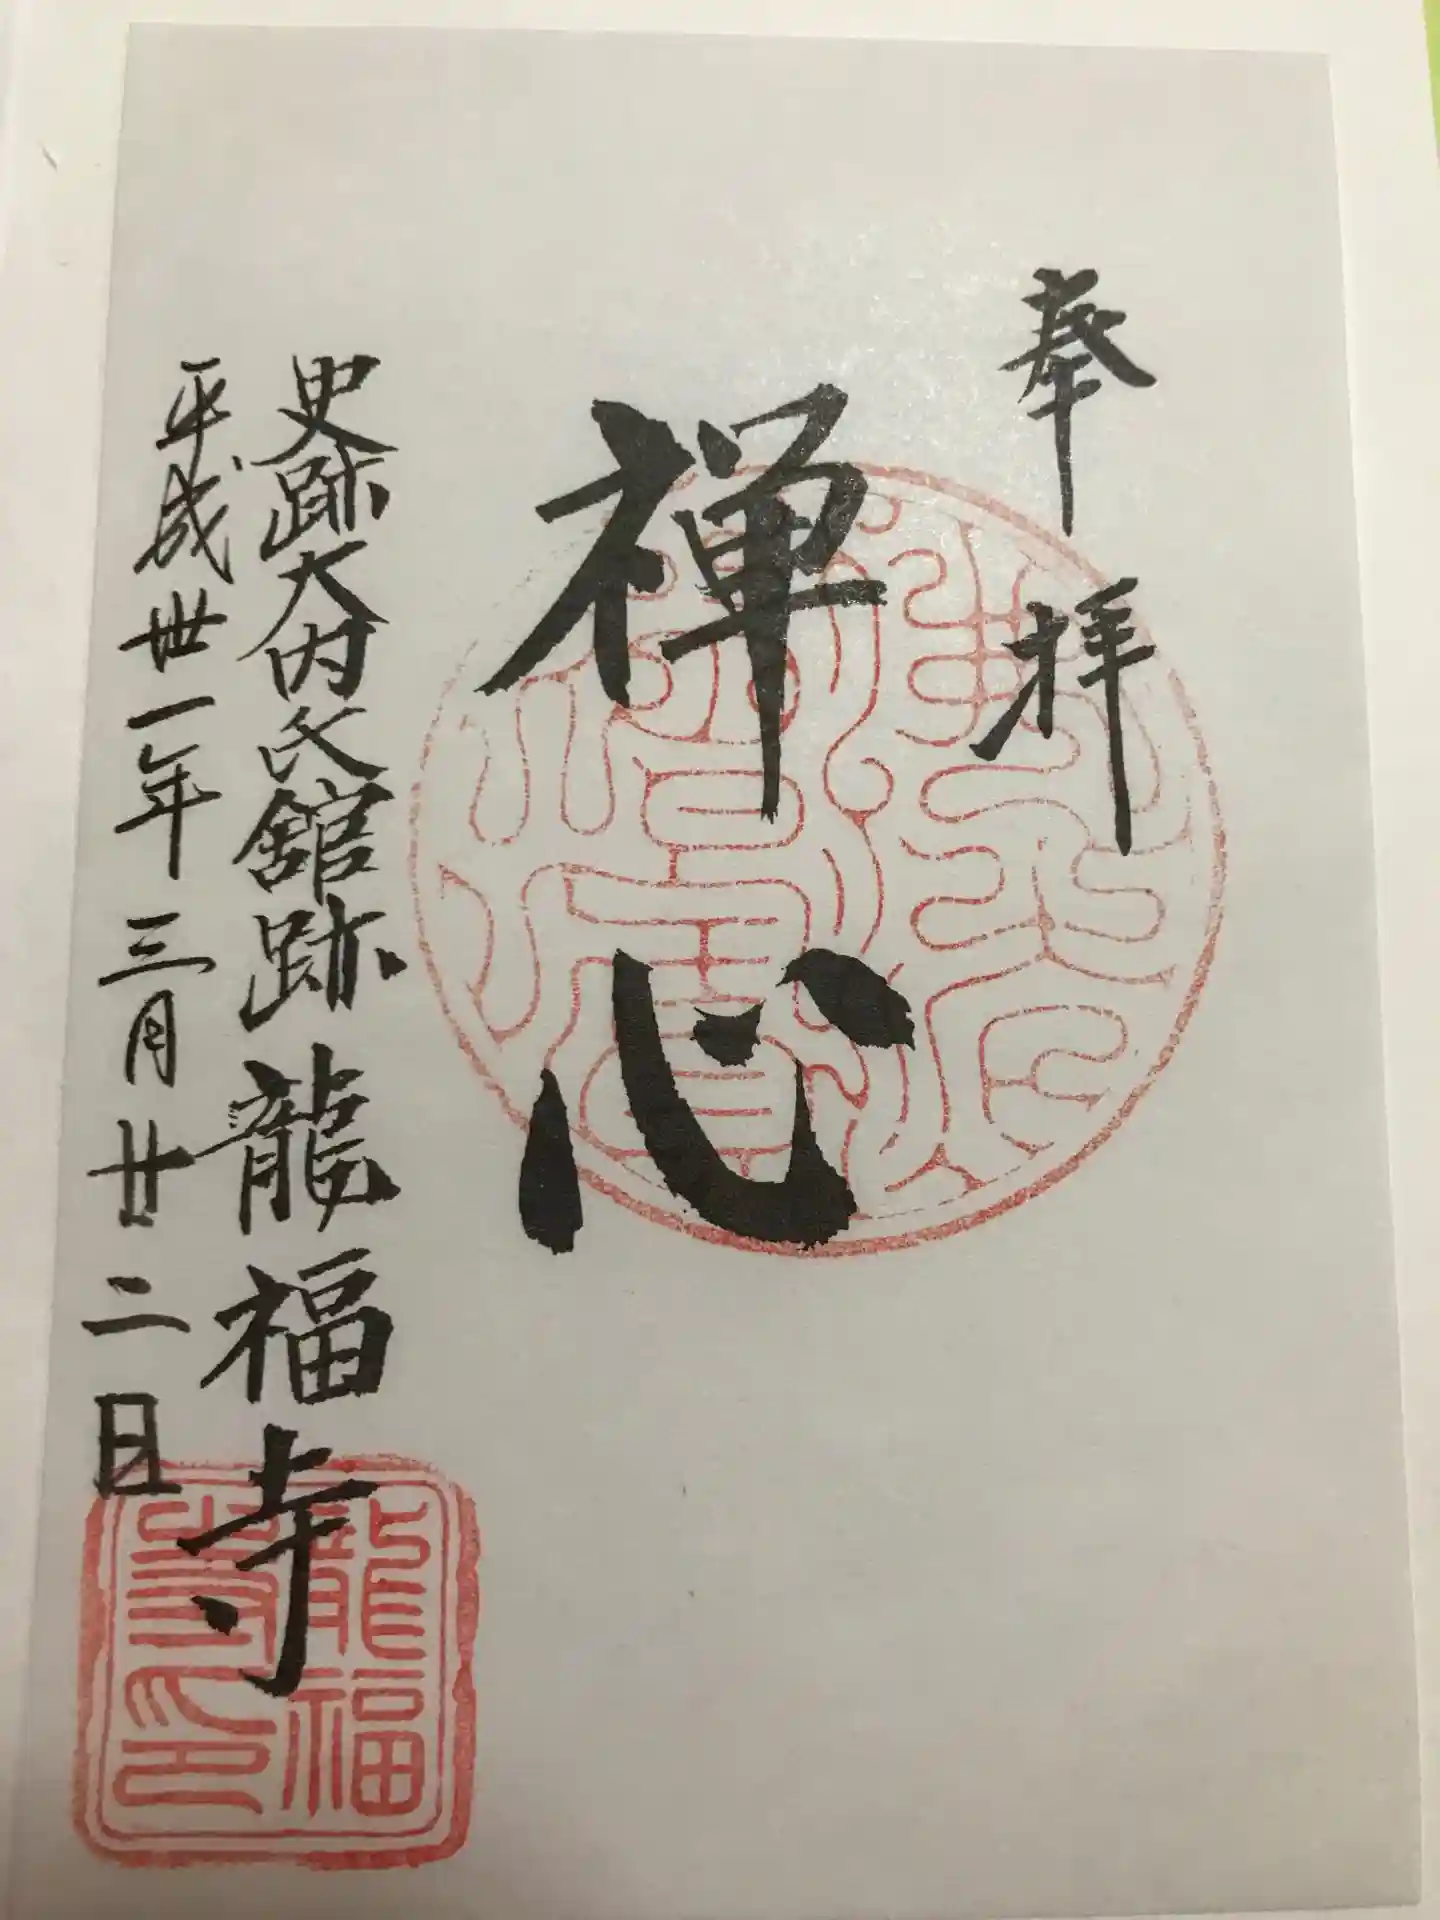 奉拝
禅心
史跡大内氏舘跡龍福寺
平成丗一年三月廿二日
龍福
寺印